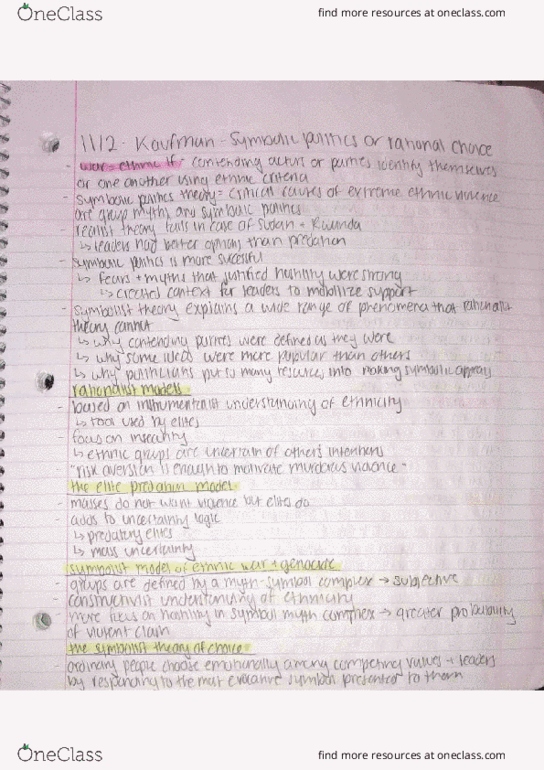 OneClass
find more resources at oneclass.com
11/12 - Kaufman - Symbolic politics or rational choice
- war = ethnic if contending actors or parties identify themselves
or one another using ethnic criteria
- symbolic politics theory = critical causes of extreme ethnic violence
are group myths and symbolic politics
- realist theory fails in case of Sudan + Rwanda
↳ leaders had better options than predation
- symbolic politics is more sucessful
↳ fears + myths that justified hostility were strong
↳ created context for leaders to mobilize support
- symbolist theory explains a wide range of phenomena that rationalist
theory cannot
↳ why contending parties were defined as they were
↳ why some ideas were more popular than others
↳ why politicians put so many resources into making symbolic appeals
rationalist models
- based on instrumentalist understanding of ethnicity
↳ tool used by elites
- focus on insecurity
↳ ethnic groups are uncertain of others intentions
- "risk aversion is enough to motivate murderous violence"
the elite predation model
- masses do not want violence but elites do
- adds to uncertainty logic
↳ predatory elites
↳ mass uncertainty
symbolist model of ethnic war + genocide
- groups are defined by a myth-symbol complex → subjective
- constructivist understanding of ethnicity
- more focus on hostility in symbol myth complex → greater probability
of violent clash
the symbolist theory of choice
- ordinary people choose emotionally among competing values + leaders
by responding to the most evocative symbols presented to them
OneClass
find more resources at oneclass.com